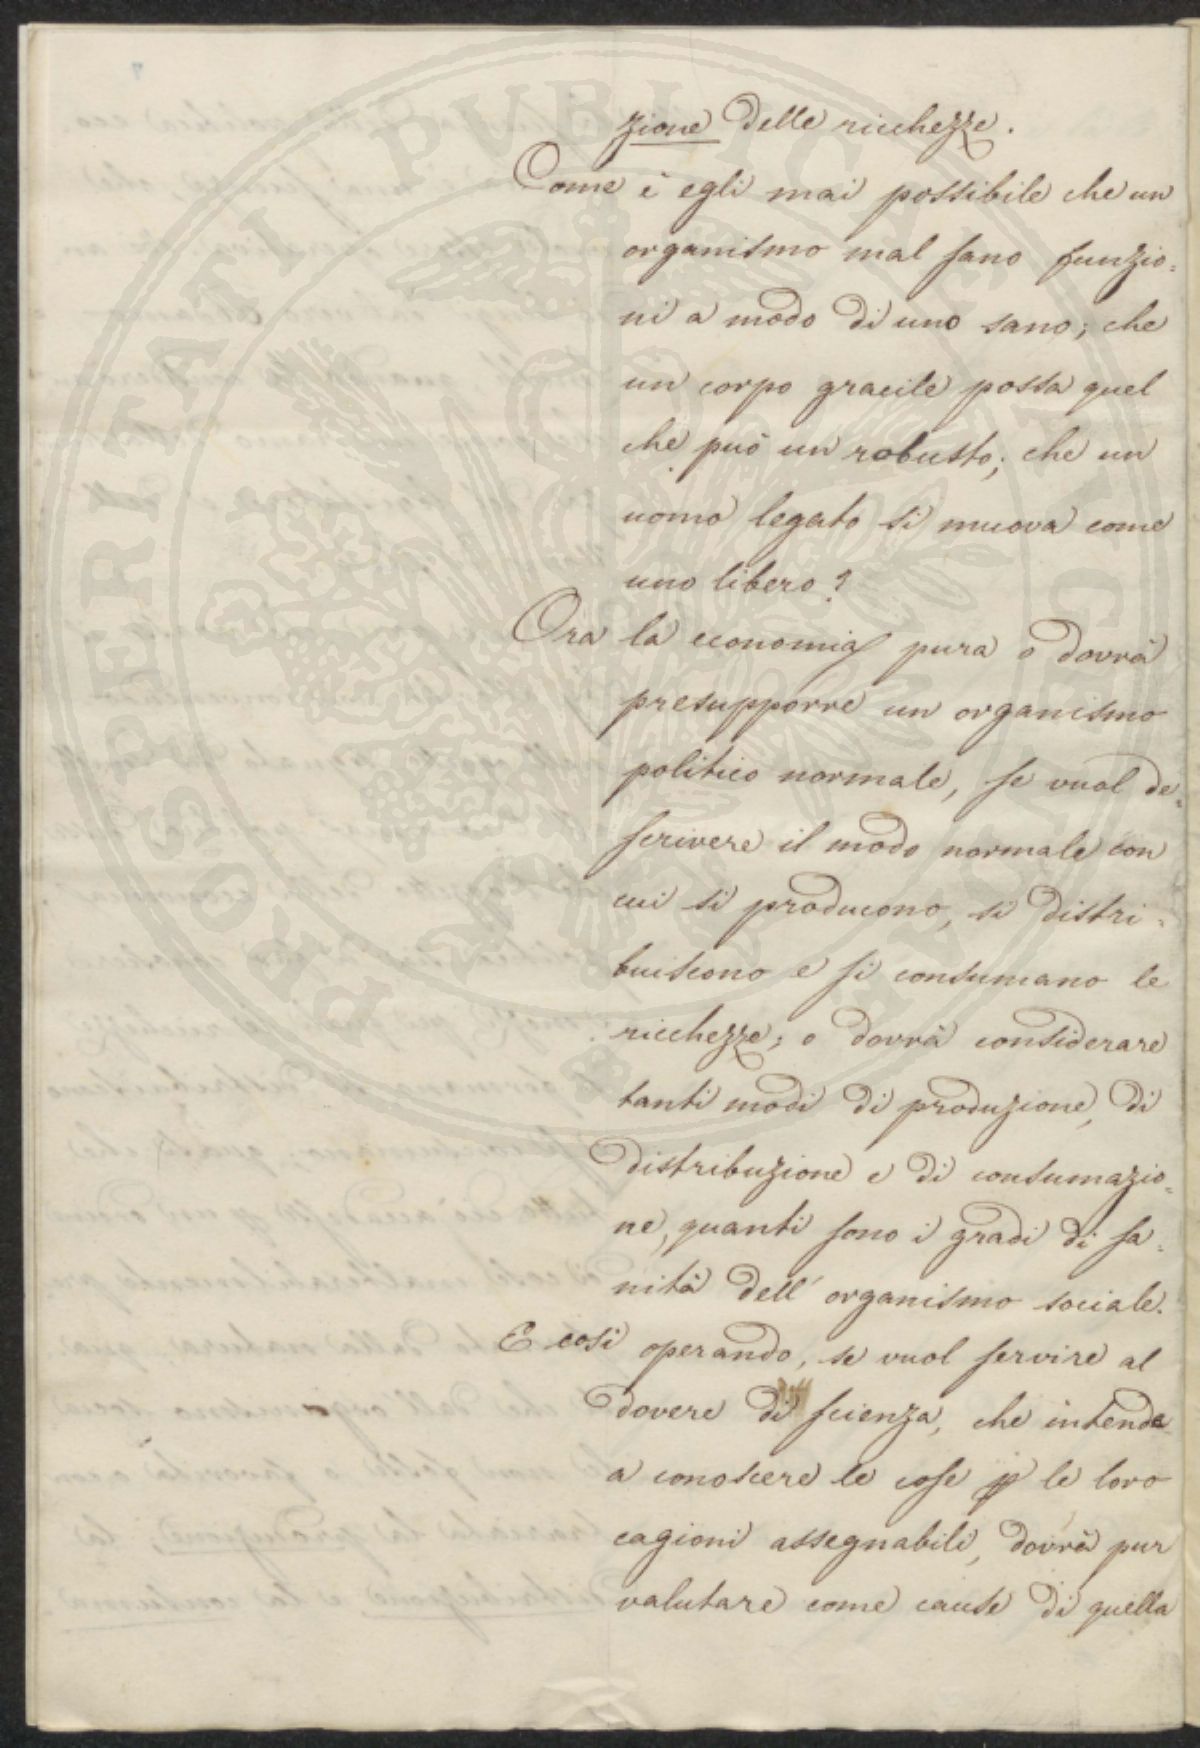 zione delle ricchezze.
Come è egli mai possibile che un
organismo mal sano funzio=
ni a modo di uno sano; che
un corpo gracile possa quel
che può un robusto; che un
uomo legato si muova come
uno libero?
Ora la economia pura o dovrà
presupporre un organismo
politico normale, se vuol de=
scrivere il modo normale con
cui si producono, si distri=
buiscono e si consumano le
ricchezze; o dovrà considerare
tanti modi di produzione, di
distribuzione e di consumazio=
ne, quanti sono i gradi di sa=
nità dell' organismo sociale.
E così operando, se vuol servire al
dovere di scienza, che intende
a conoscere le cose p le loro
cagioni assegnabili, dovrà pur
valutare come cause di quella
PROSPERITATI PUBLICAE AUGENDAE